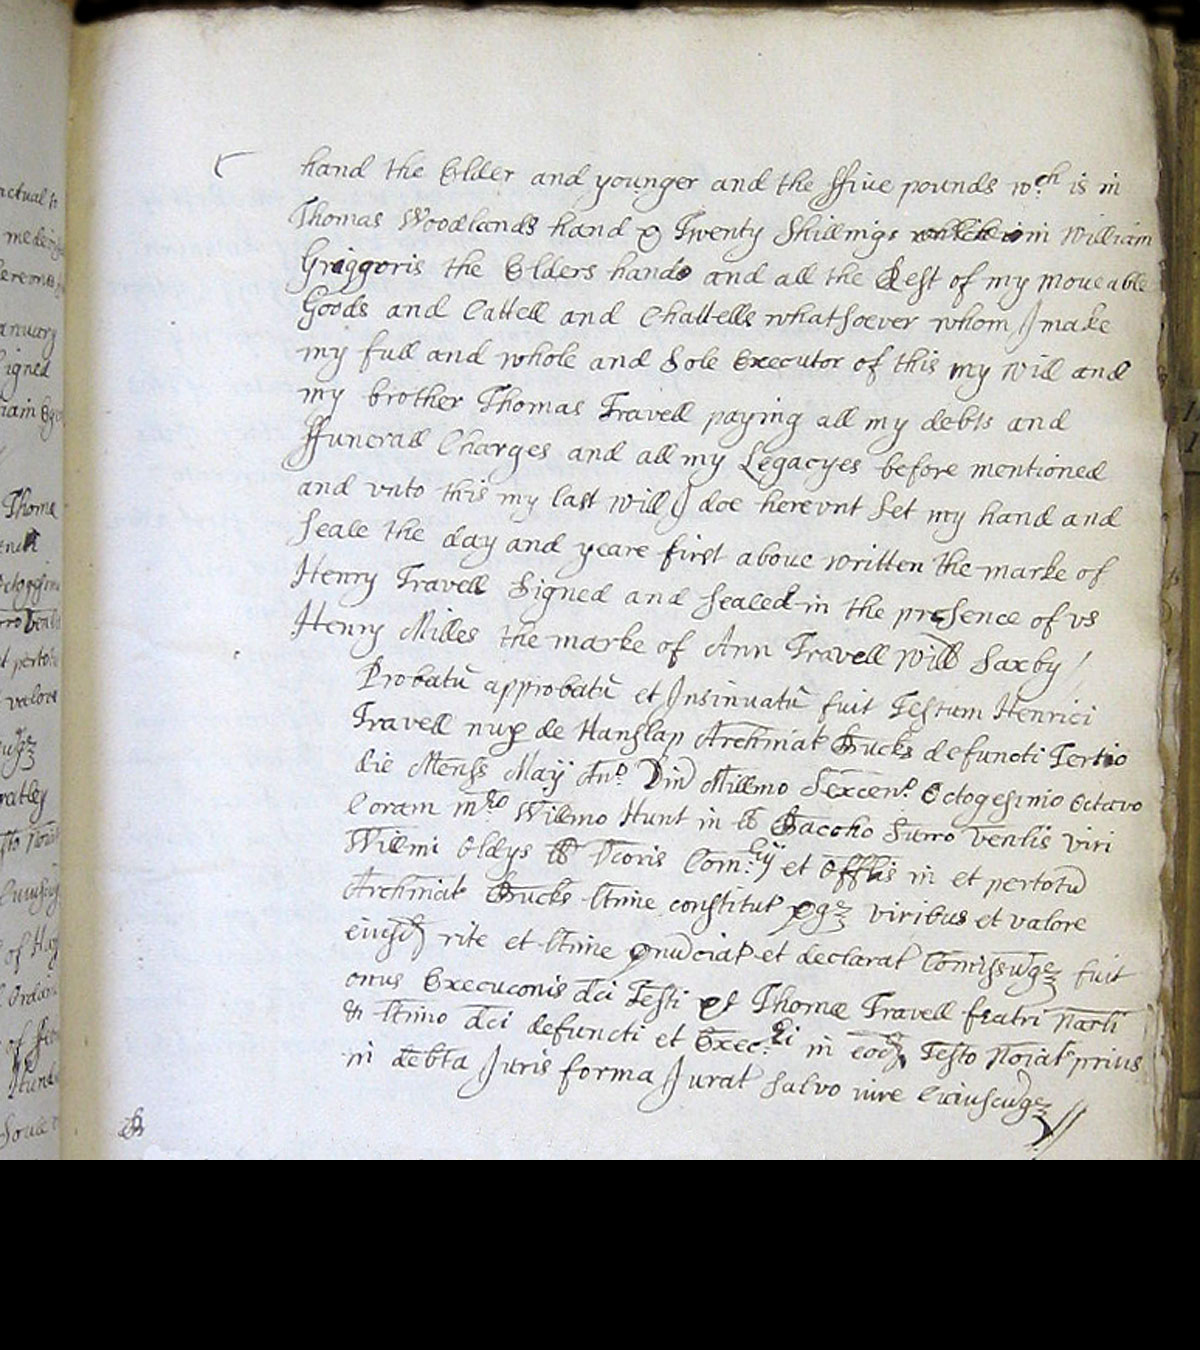 hand the Elder and younger and the ffive pounds wch is in
Thomas Woodlands hand & Twenty Shillings which is in William
Griggoris the Elders hands and all the Rest of my moveable
Goods and Cattell and Chattells whatsoever whom I make
my full and whole and Sole Executor of this my Will and
my brother Thomas Travell paying all my debts and
ffunerall Charges and all my Legacyes before mentioned
and vnto this my last will I doe herevnt Set my hand and
Seale the day and yeare first above written the marke of
Henry Travell Signed and Sealed in the presence of vs
Henry Milles the marke of Ann Travell Will Saxby /
Probatū approbatū et Insinuatū fuit Testum Henrici
Travell nup de Hanslap Archniat Bucks defuncti Tertio
die Menss Maij Ano Dni Millmo Sexceno Octogesimo Octavo
Coram mro Willmo Hunt in Baccho Surro venlis viri
Willmi Oldys Vcoris Com et Offlis in et pertotū
Archniat Bucks ltime constitut viribus et valore
eiusd rite et ltime pnūciat et declarat Comissūqz fuit
onus Execuconis dci Testi Thomæ Travell fratri Narli
& ltimo dci defuncti et Exec in eod Testo Noiat prius
in debta Juris forma Jurat Salvo iure Cuiuscūqz //